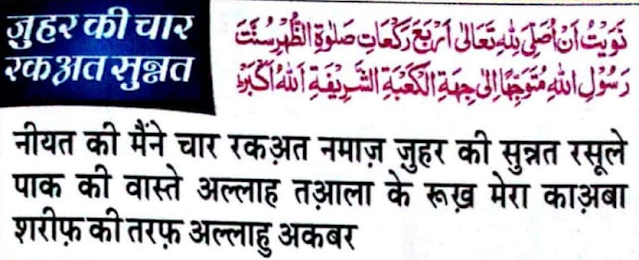 ज़ुहर की चार
रकअ़त सुन्नत
نَوَيْتُ اَنْ اُصَلِّىَ لِلّٰهِ تَعَالٰى اَرْبَعَ رَكْعَاتِ صَلٰوةِ الظُّهْرِ سُنَّتَ
رَسُوْلِ اللهِ مُتَوَجِّهًا اِلٰى جِهَةِ الْكَعْبَةِ الشَّرِيْفَةِ اَللهُ اَكْبَرُ
नीयत की मैंने चार रकअ़त नमाज़ ज़ुहर की सुन्नत रसूले
पाक की वास्ते अल्लाह तअ़ाला के रूख़ मेरा काअ़बा
शरीफ़ की तरफ़ अल्लाहु अकबर